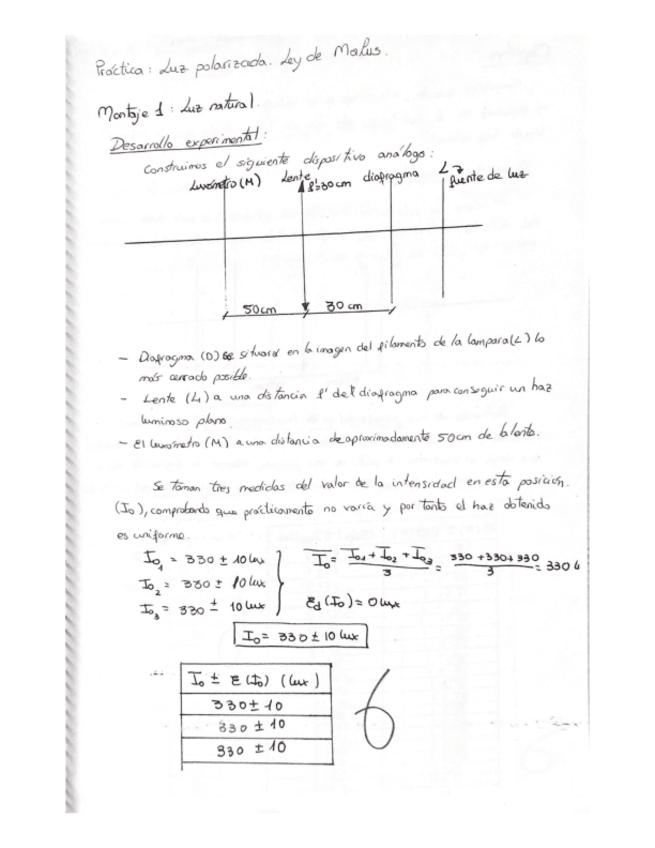 Práctica: Luz polarizada. Ley de Malus.
Montaje 1: Luz natural.
Desarrollo experimental:
Construimos el siguiente dispositivo análogo:
Luxómetro (M) Lente f'=30cm diafragma L → fuente de luz
50cm 30 cm
- Diafragma (D) se situará en la imagen del filamento de la lámpara (L) lo
más cerrado posible.
- Lente (L) a una distancia f' del diafragma para conseguir un haz
luminoso plano.
- El luxómetro (M) a una distancia de aproximadamente 50cm de la lente.
Se toman tres medidas del valor de la intensidad en esta posición.
(I₀), comprobando que prácticamente no varía y por tanto el haz obtenido
es uniforme.
I₀₁ = 330 ± 10 lux
I₀₂ = 330 ± 10 lux
I₀₃ = 330 ± 10 lux
I₀ = I₀₁ + I₀₂ + I₀₃ / 3 = 330 + 330 + 330 / 3 = 330 l
εd (I₀) = 0 lux
I₀ = 330 ± 10 lux
I₀ ± ε (I₀) (lux)
330 ± 10
330 ± 10
330 ± 10
6